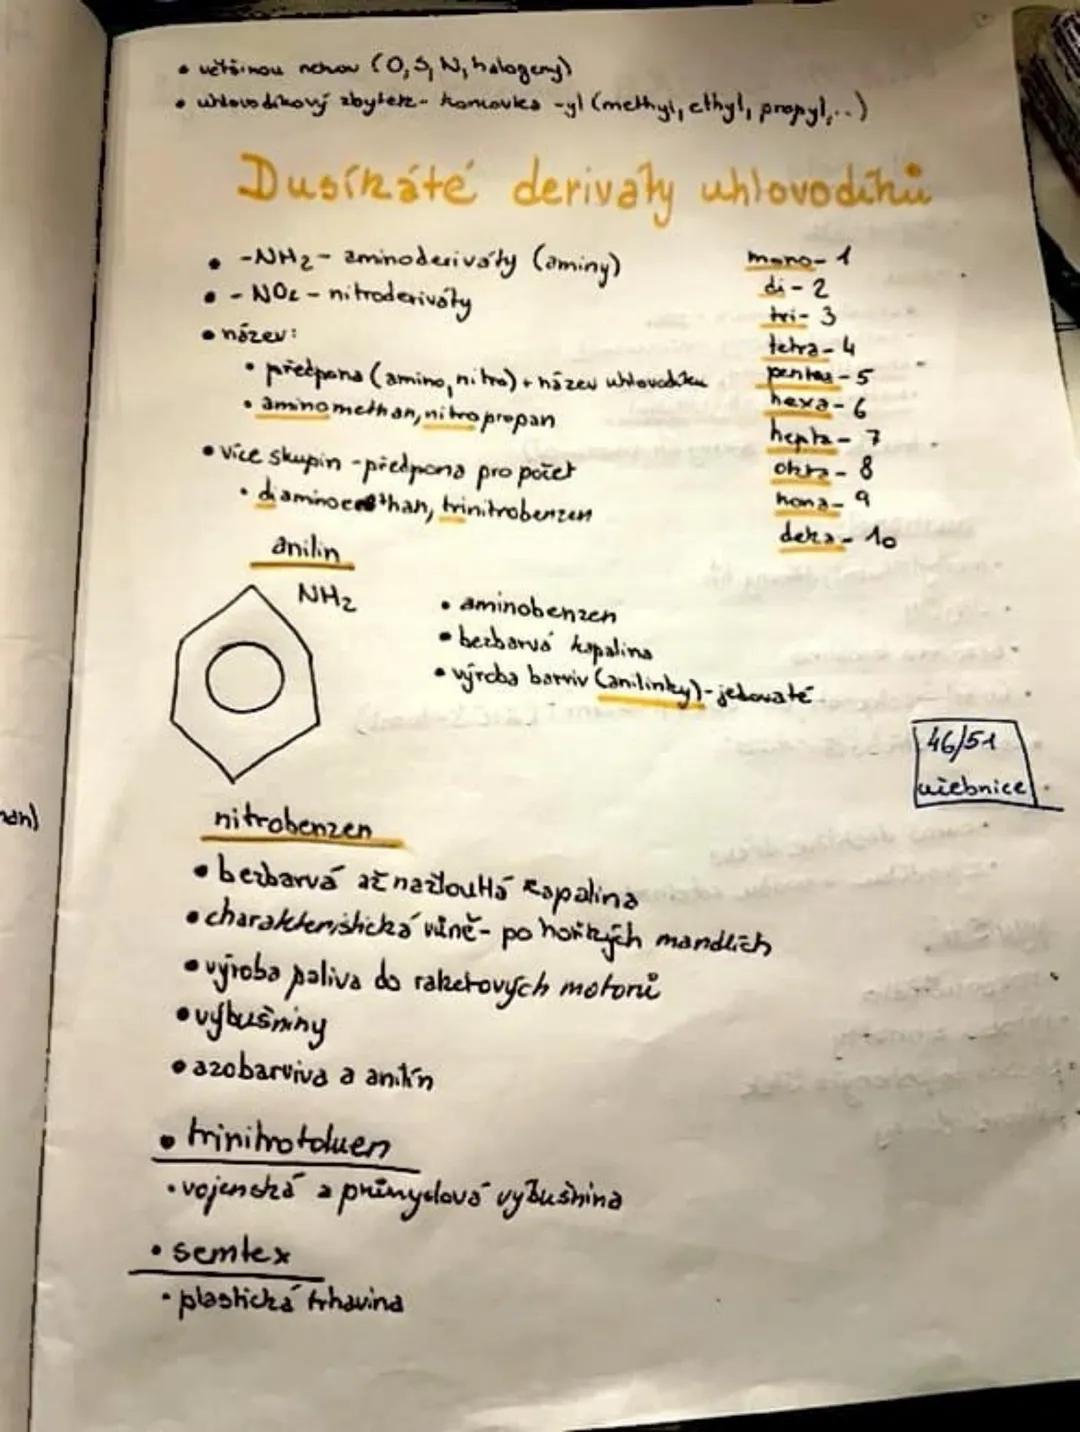 • většinou nekov (O, S, N, halogeny)
• uhlovodíkový zbytek - koncovka -yl (methyl, ethyl, propyl,...)
Dusíkáté deriváty uhlovodíků
• -NH₂ - aminoderiváty (aminy)
• -NO₂ - nitroderiváty
• název:
• předpona (amino, nitro) + název uhlovodíku
• aminomethan, nitropropan
• více skupin - předpona pro počet
• diaminoethan, trinitrobenzen
mono - 1
di - 2
tri - 3
tetra - 4
penta - 5
hexa - 6
hepta - 7
okta - 8
nona - 9
deka - 10
anilin
NH₂
• aminobenzen
• bezbarvá kapalina
• výroba barviv (anilinky) - jedovaté
46/51
učebnice
nitrobenzen
• bezbarvá až nažloutlá kapalina
• charakteristická vůně - po hořkých mandlích
• výroba paliva do raketových motorů
• výbušniny
• azobarviva a anilín
• trinitrotoluen
• vojenská a průmyslová výbušnina
• semtex
• plastická trhavina